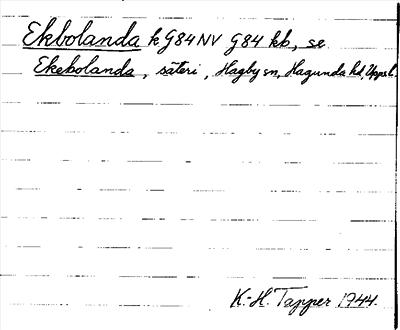 Ekbolanda k G84NV G84 kb, se
Ekebolanda, säteri, Hagby sn, Hagunda hd, Upps.l.
K.-H. Tapper 1944.